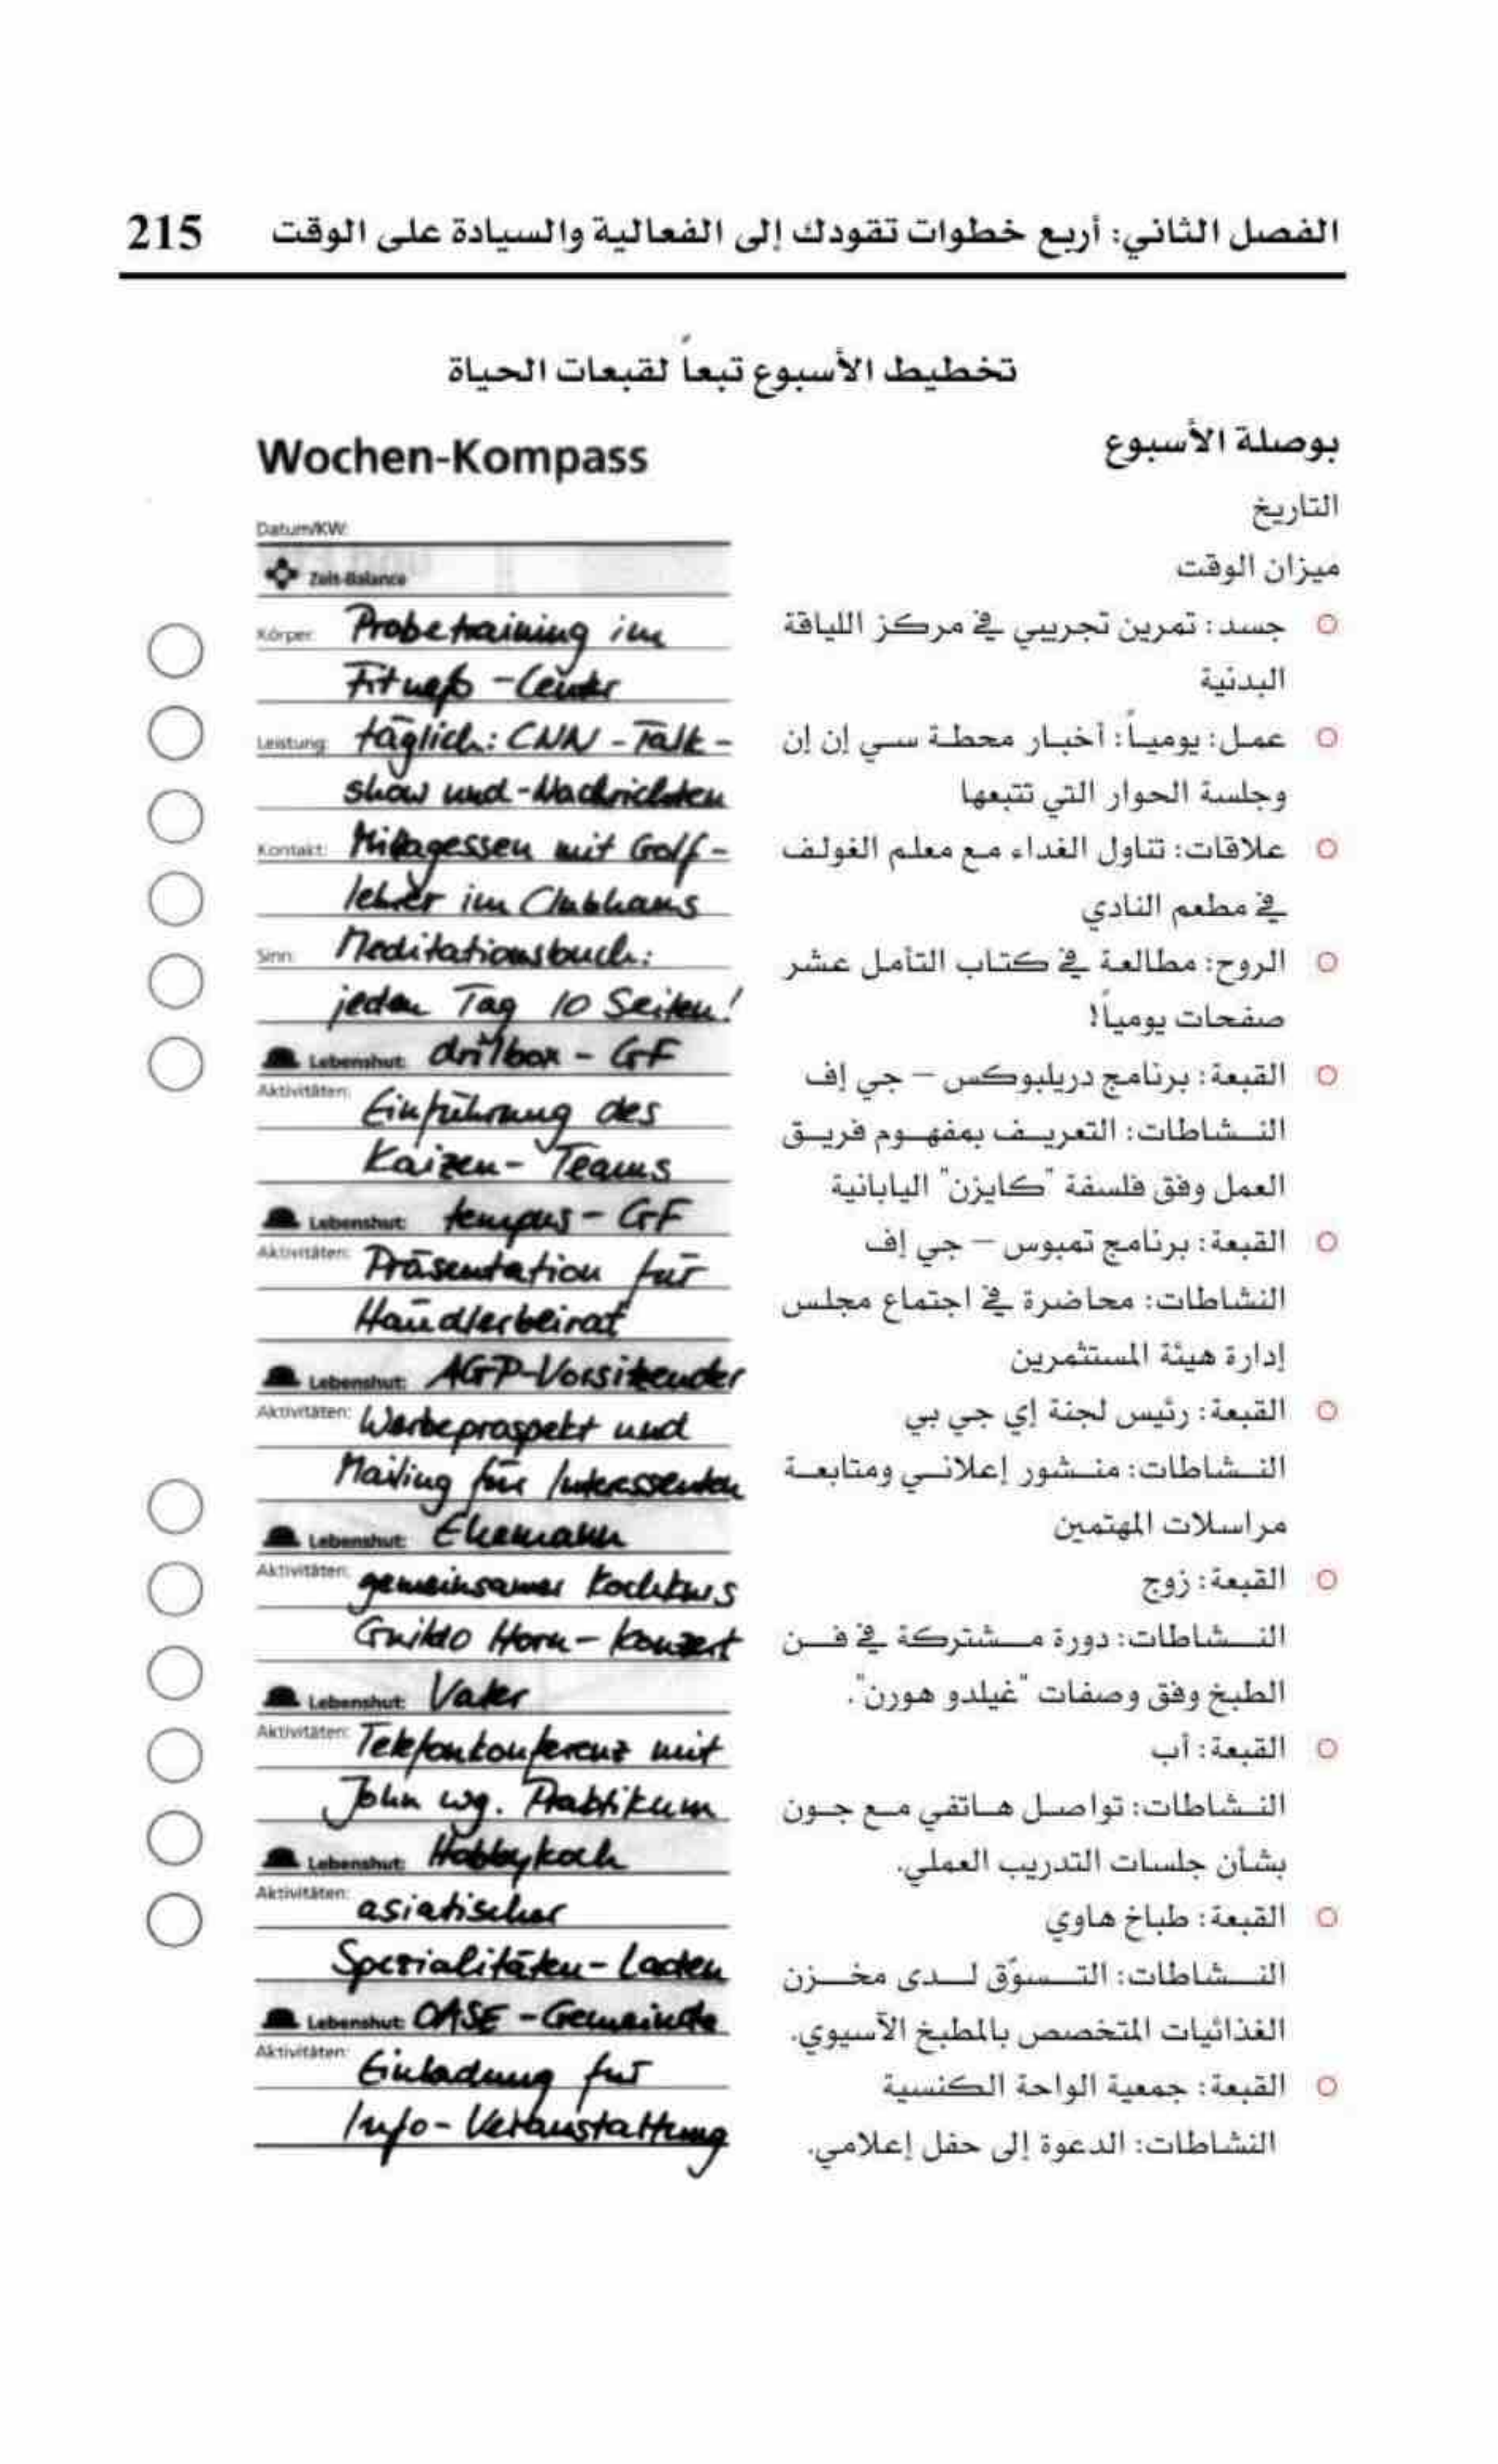 الفصل الثاني: أربع خطوات تقودك إلى الفعالية والسيادة على الوقت 215
تخطيط الأسبوع تبعاً لقبعات الحياة
بوصلة الأسبوع
التاريخ
ميزان الوقت
جسد: تمرين تجريبي في مركز اللياقة
البدنية
عمل: يومياً: أخبار محطة سي إن إن
وجلسة الحوار التي تتبعها
علاقات: تناول الغداء مع معلم الغولف
في مطعم النادي
الروح: مطالعة في كتاب التأمل عشر
صفحات يومياً!
القبعة: برنامج دريلبوكس – جي إف
النشاطات: التعريف بمفهوم فريق
العمل وفق فلسفة "كايزن" اليابانية
القبعة: برنامج تمبوس – جي إف
النشاطات: محاضرة في اجتماع مجلس
إدارة هيئة المستثمرين
القبعة: رئيس لجنة إي جي بي
النشاطات: منشور إعلاني ومتابعة
مراسلات المهتمين
القبعة: زوج
النشاطات: دورة مشتركة في فن
الطبخ وفق وصفات "غيلدو هورن".
القبعة: أب
النشاطات: تواصل هاتفي مع جون
بشأن جلسات التدريب العملي.
القبعة: طباخ هاوي
النشاطات: التسوّق لدى مخزن
الغذائيات المتخصص بالمطبخ الآسيوي.
القبعة: جمعية الواحة الكنسية
النشاطات: الدعوة إلى حفل إعلامي.
Wochen-Kompass
Datum/KW:
Zeit-Balance
Körper: Probetraining im
Fitneß-Center
Leistung: täglich: CNN-Talk-
show und -Nachrichten
Kontakt: Mittagessen mit Golf-
lehrer im Clubhaus
Sinn: Meditationsbuch:
jeden Tag 10 Seiten!
Lebenshut: drilbox - GF
Aktivitäten: Einführung des
Kaizen-Teams
Lebenshut: tempus - GF
Aktivitäten: Präsentation für
Händlerbeirat
Lebenshut: AGP-Vorsitzender
Aktivitäten: Werbeprospekt und
Mailing für Interessenten
Lebenshut: Ehemann
Aktivitäten: gemeinsamer Kochkurs
Guildo Horn-Konzert
Lebenshut: Vater
Aktivitäten: Telefonkonferenz mit
John wg. Praktikum
Lebenshut: Hobbykoch
Aktivitäten: asiatischer
Spezialitäten-Laden
Lebenshut: OASE-Gemeinde
Aktivitäten: Einladung für
Info-Veranstaltung